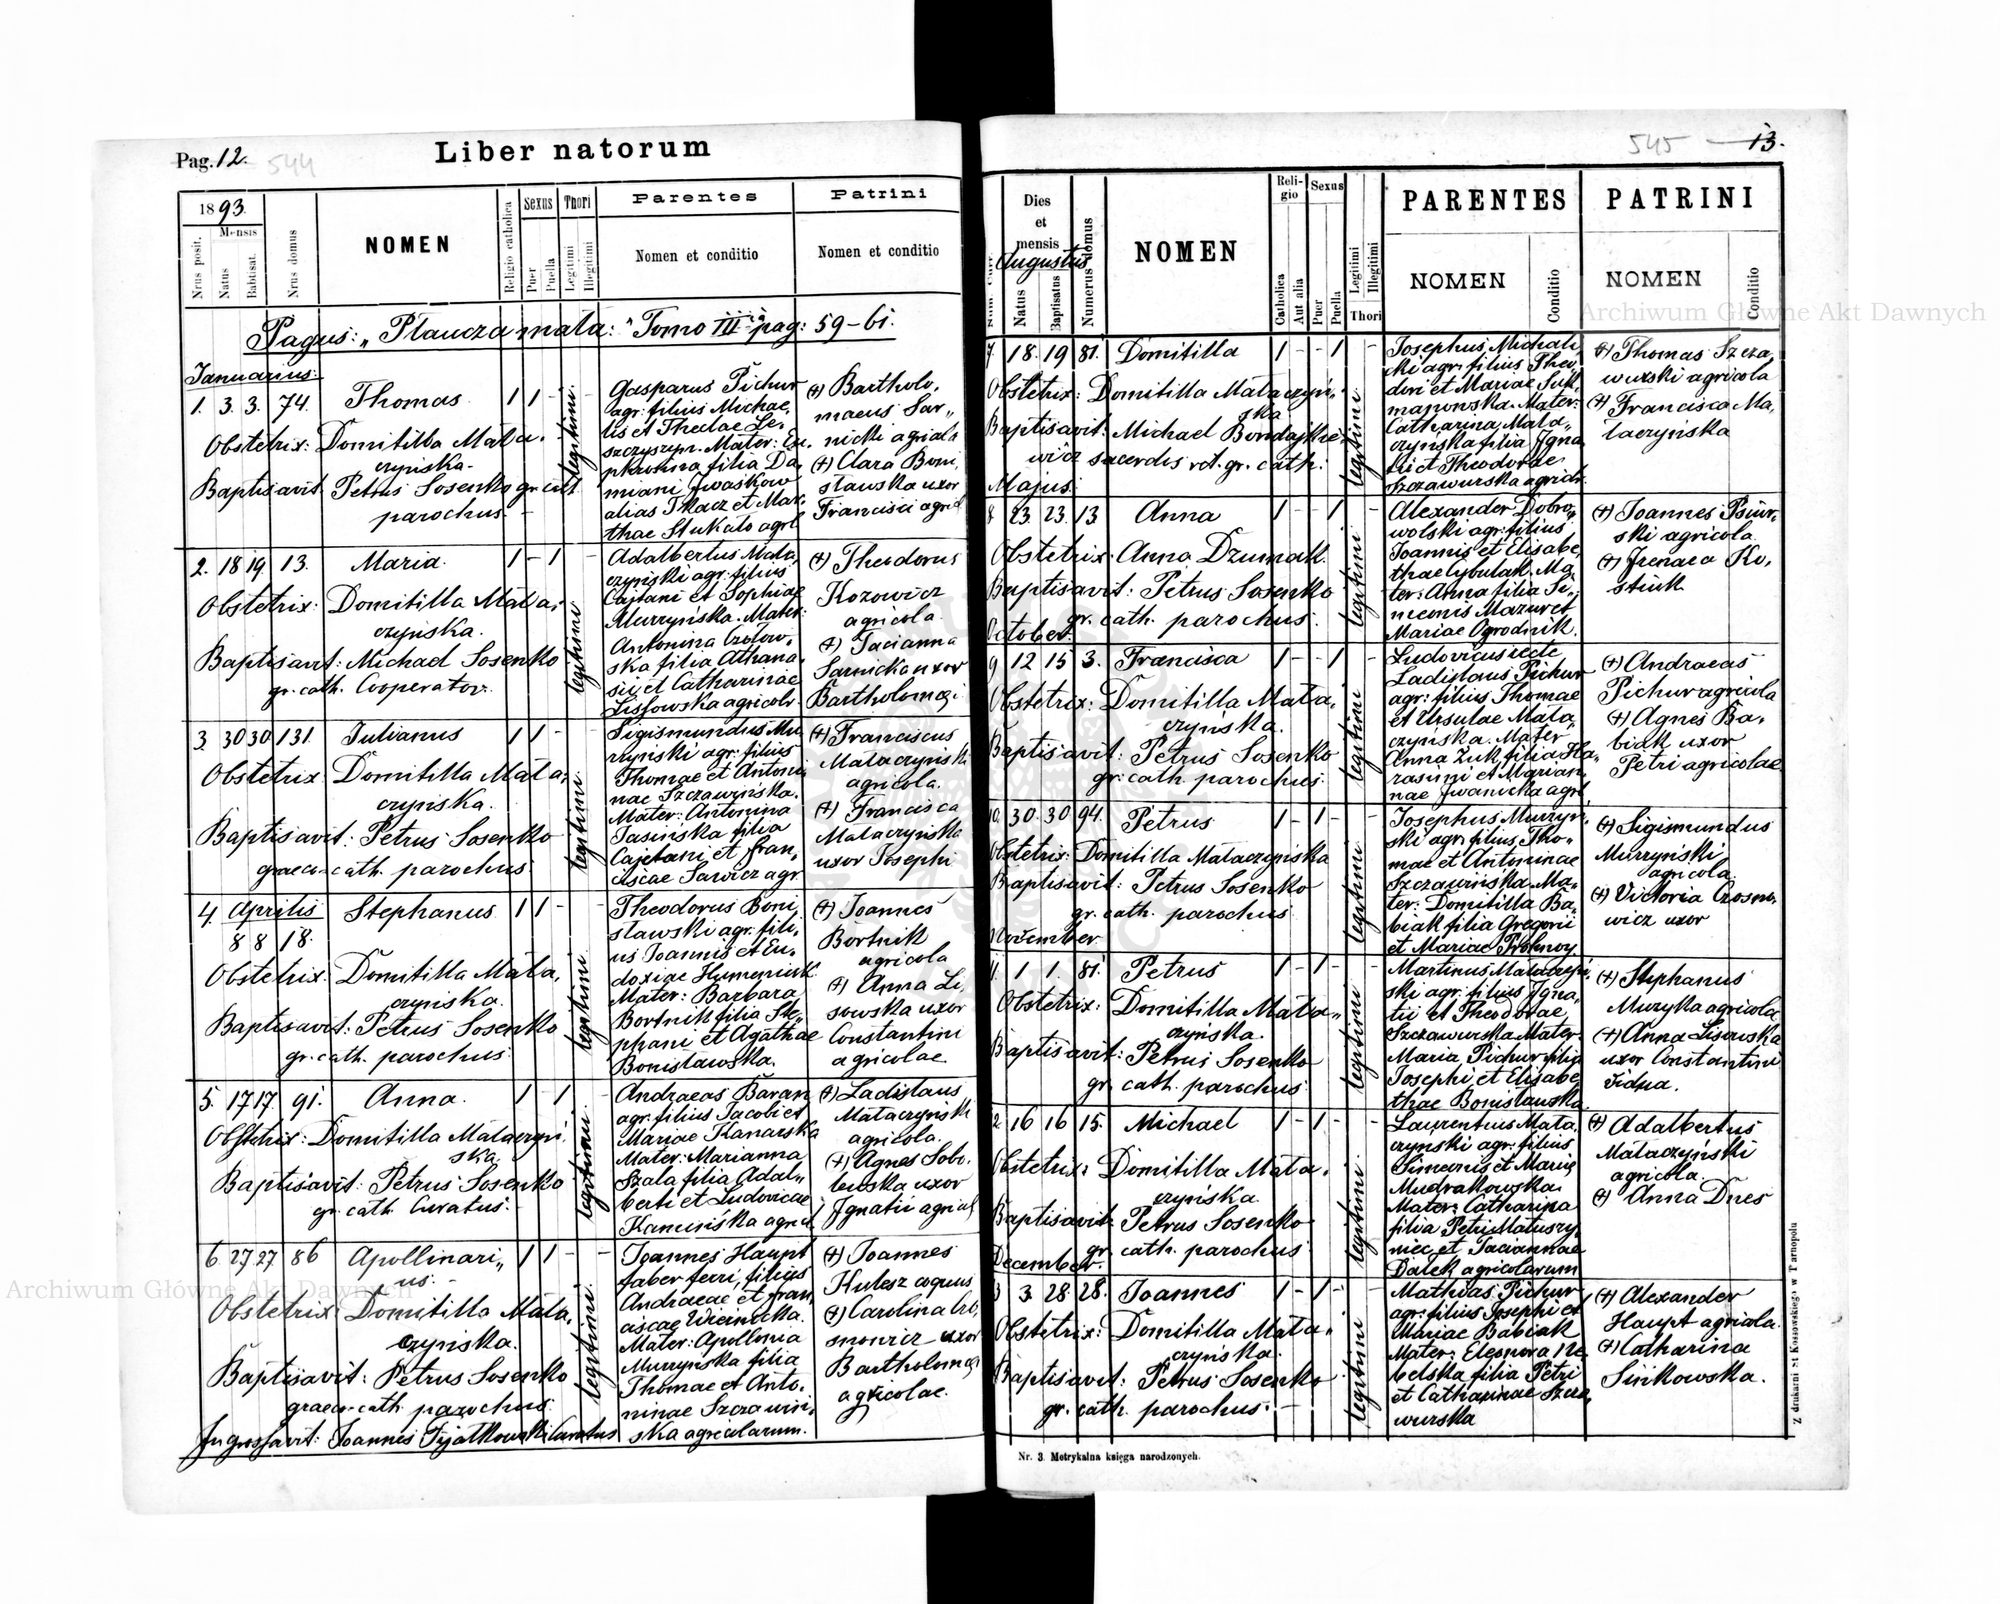 Pag. 12.
544
Liber natorum
1893.
Mensis
Nrus posit.
Natus
Babtisat.
Nrus domus
NOMEN
Religio catholica
Sexus
Puer
Puella
Thori
Legitimi
Illegitimi
Parentes
Nomen et conditio
Patrini
Nomen et conditio
Pagus: „Płaucza mała:" Tomo III pag: 59-61.
Januarius:
1. 3. 3. 74. Thomas 1 1 - -
legitimi
Obstetrix: Domitilla Mała-
czyńska.
Baptisavit Petrus Sosenko gr. cath
parochus.
Gasparus Pichur
agr: filius Michae,
lis et Theclae Le,
szczyszyn. Mater: Eu,
phrosina filia Da,
miani Jwaskow
alias Tkacz et Mar,
thae Stukało agrl
(+) Bartholo,
maeus Sar„
nicki agricola
(+) Clara Boni,
sławska uxor
Francisci agricl
2. 18 19 13. Maria. 1 - 1 -
legitimi
Obstetrix: Domitilla Mała,
czyńska.
Baptisavit: Michael Sosenko
gr. cath. Cooperator.
Adalbertus Mała,
czyński agr. filius
Cajtani et Sophiae
Murzyńska. Mater:
Antonina Czołow,
ska filia Athana,
sii et Catharinae
Lissowska agricolr.
(+) Theodorus
Kozowicz
agricola.
(+) Tacianna
Sarnicka uxor
Bartholomaei
3. 30 30 131. Julianus 1 1 - -
legitimi
Obstetrix Domitilla Mała,
czyńska.
Baptisavit: Petrus Sosenko
graeco-cath. parochus.
Sigismundus Mu,
rzyński agr: filius
Thomae et Antoni,
nae Szczawińska.
Mater: Antonina
Jasińska filia
Cajetani et Fran,
ciscae Sawicz agr
(+) Franciscus
Małaczyński
agricola.
(+) Francisca
Małaczyńska
uxor Josephi
4. Aprilis Stephanus 1 1 - -
8 8 18.
legitimi
Obstetrix: Domitilla Mała,
czyńska.
Baptisavit: Petrus Sosenko
gr. cath. parochus.
Theodorus Boni,
sławski agr. fili,
us Joannis et Eu,
doxiae Humeniuk
Mater: Barbara
Bortnik filia Ste„
phani et Agathae
Bonisławska.
(+) Joannes
Bortnik
agricola
(+) Anna Li,
sowska uxor
Constantini
agricolae.
5. 17 17. 91. Anna. 1 - 1 -
legitimi
Obstetrix: Domitilla Małaczyń,
ska.
Baptisavit: Petrus Sosenko
gr. cath Curatus.
Andraeas Baran
agr. filius Jacobi et
Mariae Kanarska
Mater: Marianna
Szala filia Adal„
berti et Ludovicae
Kamińska agricl
(+) Ladislaus
Małaczyński
agricola.
(+) Agnes Sobo,
lewska uxor
Jgnatii agricl
6. 27 27 86 Apollinari„ 1 1 - -
us.
legitimi
Obstetrix: Domitilla Mała,
czyńska.
Baptisavit: Petrus Sosenko
graeco-cath. parochus.
Joannes Haupt
faber ferri, filius
Andraeae et Fran,
ciscae Wiernicka.
Mater: Apollonia
Murzyńska filia
Thomae et Anto,
ninae Szczawiń,
ska agricolarum.
(+) Joannes
Kulesz coquus
(+) Carolina Cro,
snowicz uxor
Bartholomaei
agricolae.
Jngrossavit: Joannes Curatus
545 - 13.
Dies
et
mensis
Augustus
Natus
Baptisatus
Numerus domus
NOMEN
Reli-
gio
Catholica
Aut alia
Sexus
Puer
Puella
Legitimi
Illegitimi
Thori
PARENTES
NOMEN
Conditio
PATRINI
NOMEN
Conditio
7. 18. 19 81. Domitilla 1 - - 1 -
legitimi
Obstetrix: Domitilla Małaczyń,
ska.
Baptisavit: Michael Bondajkie„
wicz sacerdos rit. gr. cath.
Josephus Michal,
ski agr. filius Theo,
dori et Mariae Suk„
manowska. Mater:
Catharina Mała„
czyńska filia Jgna,
tii et Theodorae
Szczawurska agricolr.
(+) Thomas Szcza,
wurski agricola
(+) Francisca Ma,
łaczyńska
Majus:
8 23. 23. 13 Anna 1 - - 1 -
legitimi
Obstetrix: Anna Dzumak.
Baptisavit: Petrus Sosenko
gr. cath. parochus.
Alexander Dobro„
wolski agr. filius
Joannis et Elisabe,
thae Cybulak. Ma,
ter: Anna filia Si,
meonis Mazur et
Mariae Ogrodnik.
(+) Joannes Psiur,
ski agricola.
(+) Jrenaea Ko,
stiuk
October.
9 12 15 3. Francisca 1 - - 1 -
legitimi
Obstetrix: Domitilla Mała,
czyńska.
Baptisavit: Petrus Sosenko
gr. cath. parochus.
Ludovicus recte
Ladislaus Pichur
agr: filius Thomae
et Ursulae Mała,
czyńska. Mater
Anna Żuk filia Ha,
rasimi et Marian,
nae Jwanicka agrl.
(+) Andraeas
Pichur agricola
(+) Agnes Ba,
biak uxor
Petri agricolae
10. 30. 30 94. Petrus 1 - 1 - -
legitimi
Obstetrix: Domitilla Małaczyńska
Baptisavit: Petrus Sosenko
gr. cath. parochus
Josephus Murzyń,
ski agr. filius Tho„
mae et Antoninae
Szczawińska. Ma„
ter: Domitilla Ba,
biak filia Gregorii
et Mariae
(+) Sigismundus
Murzyński
agricola.
(+) Victoria Crosno,
wicz uxor
November.
11. 1 1. 81. Petrus 1 - 1 - -
legitimi
Obstetrix: Domitilla Mała„
czyńska.
Baptisavit: Petrus Sosenko
gr. cath. parochus
Martinus Małaczyń,
ski agr. filius Jgna,
tii et Theodorae
Szczawurska. Mater
Maria Pichur filia
Josephi et Elisabe
thae Bonisławska
(+) Stephanus
Muzyka agricola
(+) Anna Lisowska
uxor Constantini
vidua.
12 16 16 15. Michael 1 - 1 - -
legitimi
Obstetrix: Domitilla Mała,
czyńska.
Baptisavit: Petrus Sosenko
gr. cath. parochus
Laurentius Mała,
czyński agr. filius
Simeonis et Mariae
Mudrakowska.
Mater: Catharina
filia Petri Matuszy„
niec et Taciannae
Dałek agricolarum
(+) Adalbertus
Małaczyński
agricola.
(+) Anna Dnes
December.
3 3. 28. 28. Joannes 1 - 1 - -
legitimi
Obstetrix: Domitilla Mała„
czyńska.
Baptisavit: Petrus Sosenko
gr. cath. parochus.
Mathias Pichur
agr. filius Josephi et
Mariae Babiak
Mater: Eleonora Ne
belska filia Petri
et Catharinae Szcza,
wurska
(+) Alexander
Haupt agricola.
(+) Catharina
Sinkowska.
Nr. 3. Metrykalna księga narodzonych.
Z drukarni St Kossowskiego w Tarnopolu
Archiwum Główne Akt Dawnych
Archiwum Główne Akt Dawnych